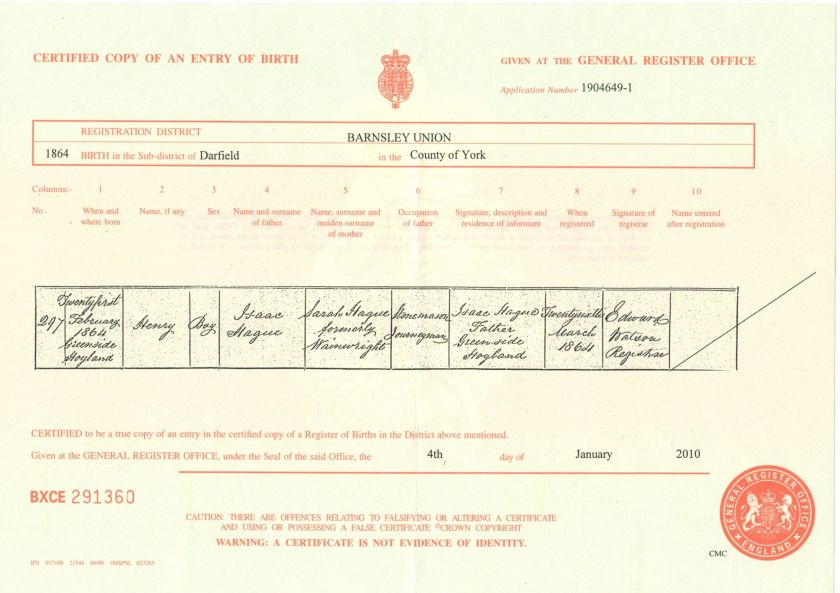 CERTIFIED COPY OF AN ENTRY OF BIRTH
GIVEN AT THE GENERAL REGISTER OFFICE
Application Number 1904649-1
REGISTRATION DISTRICT
BARNSLEY UNION
1864 BIRTH in the Sub-district of Darfield in the County of York
Columns:- 1 2 3 4 5 6 7 8 9 10
No. When and where born
Name, if any
Sex
Name and surname of father
Name, surname and maiden surname of mother
Occupation of father
Signature, description and residence of informant
When registered
Signature of registrar
Name entered after registration
297
Twentyfirst
February
1864
Greenside
Hoyland
Henry
Boy
Isaac
Hague
Sarah Hague
formerly
Wainwright
Stonemason
Journeyman
Isaac Hague
Father
Greenside
Hoyland
Twentysixth
March
1864
Edward
Watson
Registrar
CERTIFIED to be a true copy of an entry in the certified copy of a Register of Births in the District above mentioned.
Given at the GENERAL REGISTER OFFICE, under the Seal of the said Office, the 4th day of January 2010
BXCE 291360
CAUTION: THERE ARE OFFENCES RELATING TO FALSIFYING OR ALTERING A CERTIFICATE
AND USING OR POSSESSING A FALSE CERTIFICATE ©CROWN COPYRIGHT
WARNING: A CERTIFICATE IS NOT EVIDENCE OF IDENTITY.
GENERAL REGISTER OFFICE
ENGLAND
CMC